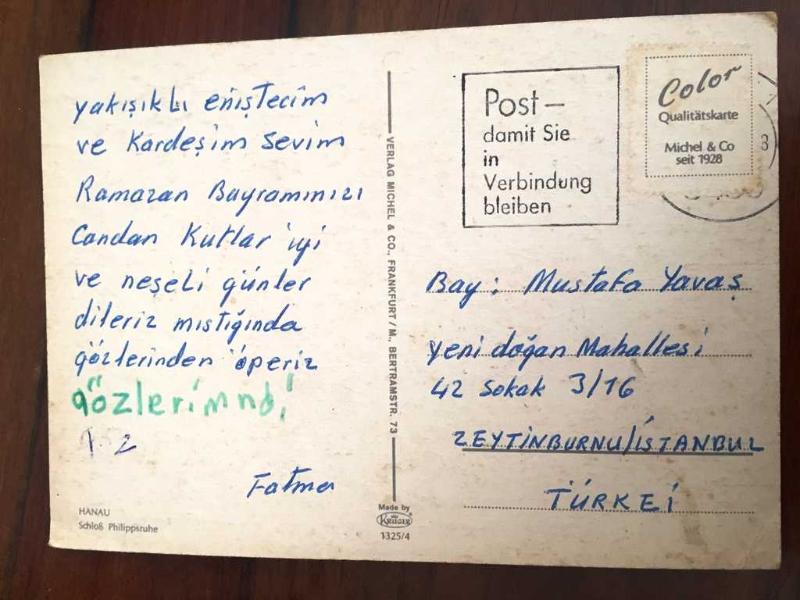 yakışıklı eniştecim
ve Kardeşim Sevim
Ramazan Bayramınızı
Candan Kutlar iyi
ve neşeli günler
dileriz mıstığında
gözlerinden öperiz
gözlerimndi
1 2
Fatma
HANAU
Schloß Philippsruhe
VERLAG MICHEL & CO., FRANKFURT / M., BERTRAMSTR. 73
Made by
KRÜGER
1325/4
Post –
damit Sie
in
Verbindung
bleiben
Color
Qualitätskarte
Michel & Co
seit 1928
Bay: Mustafa Yavaş
yeni doğan Mahallesi
42 Sokak 3/16
ZEYTİNBURNU/İSTANBUL
TÜRKEİ